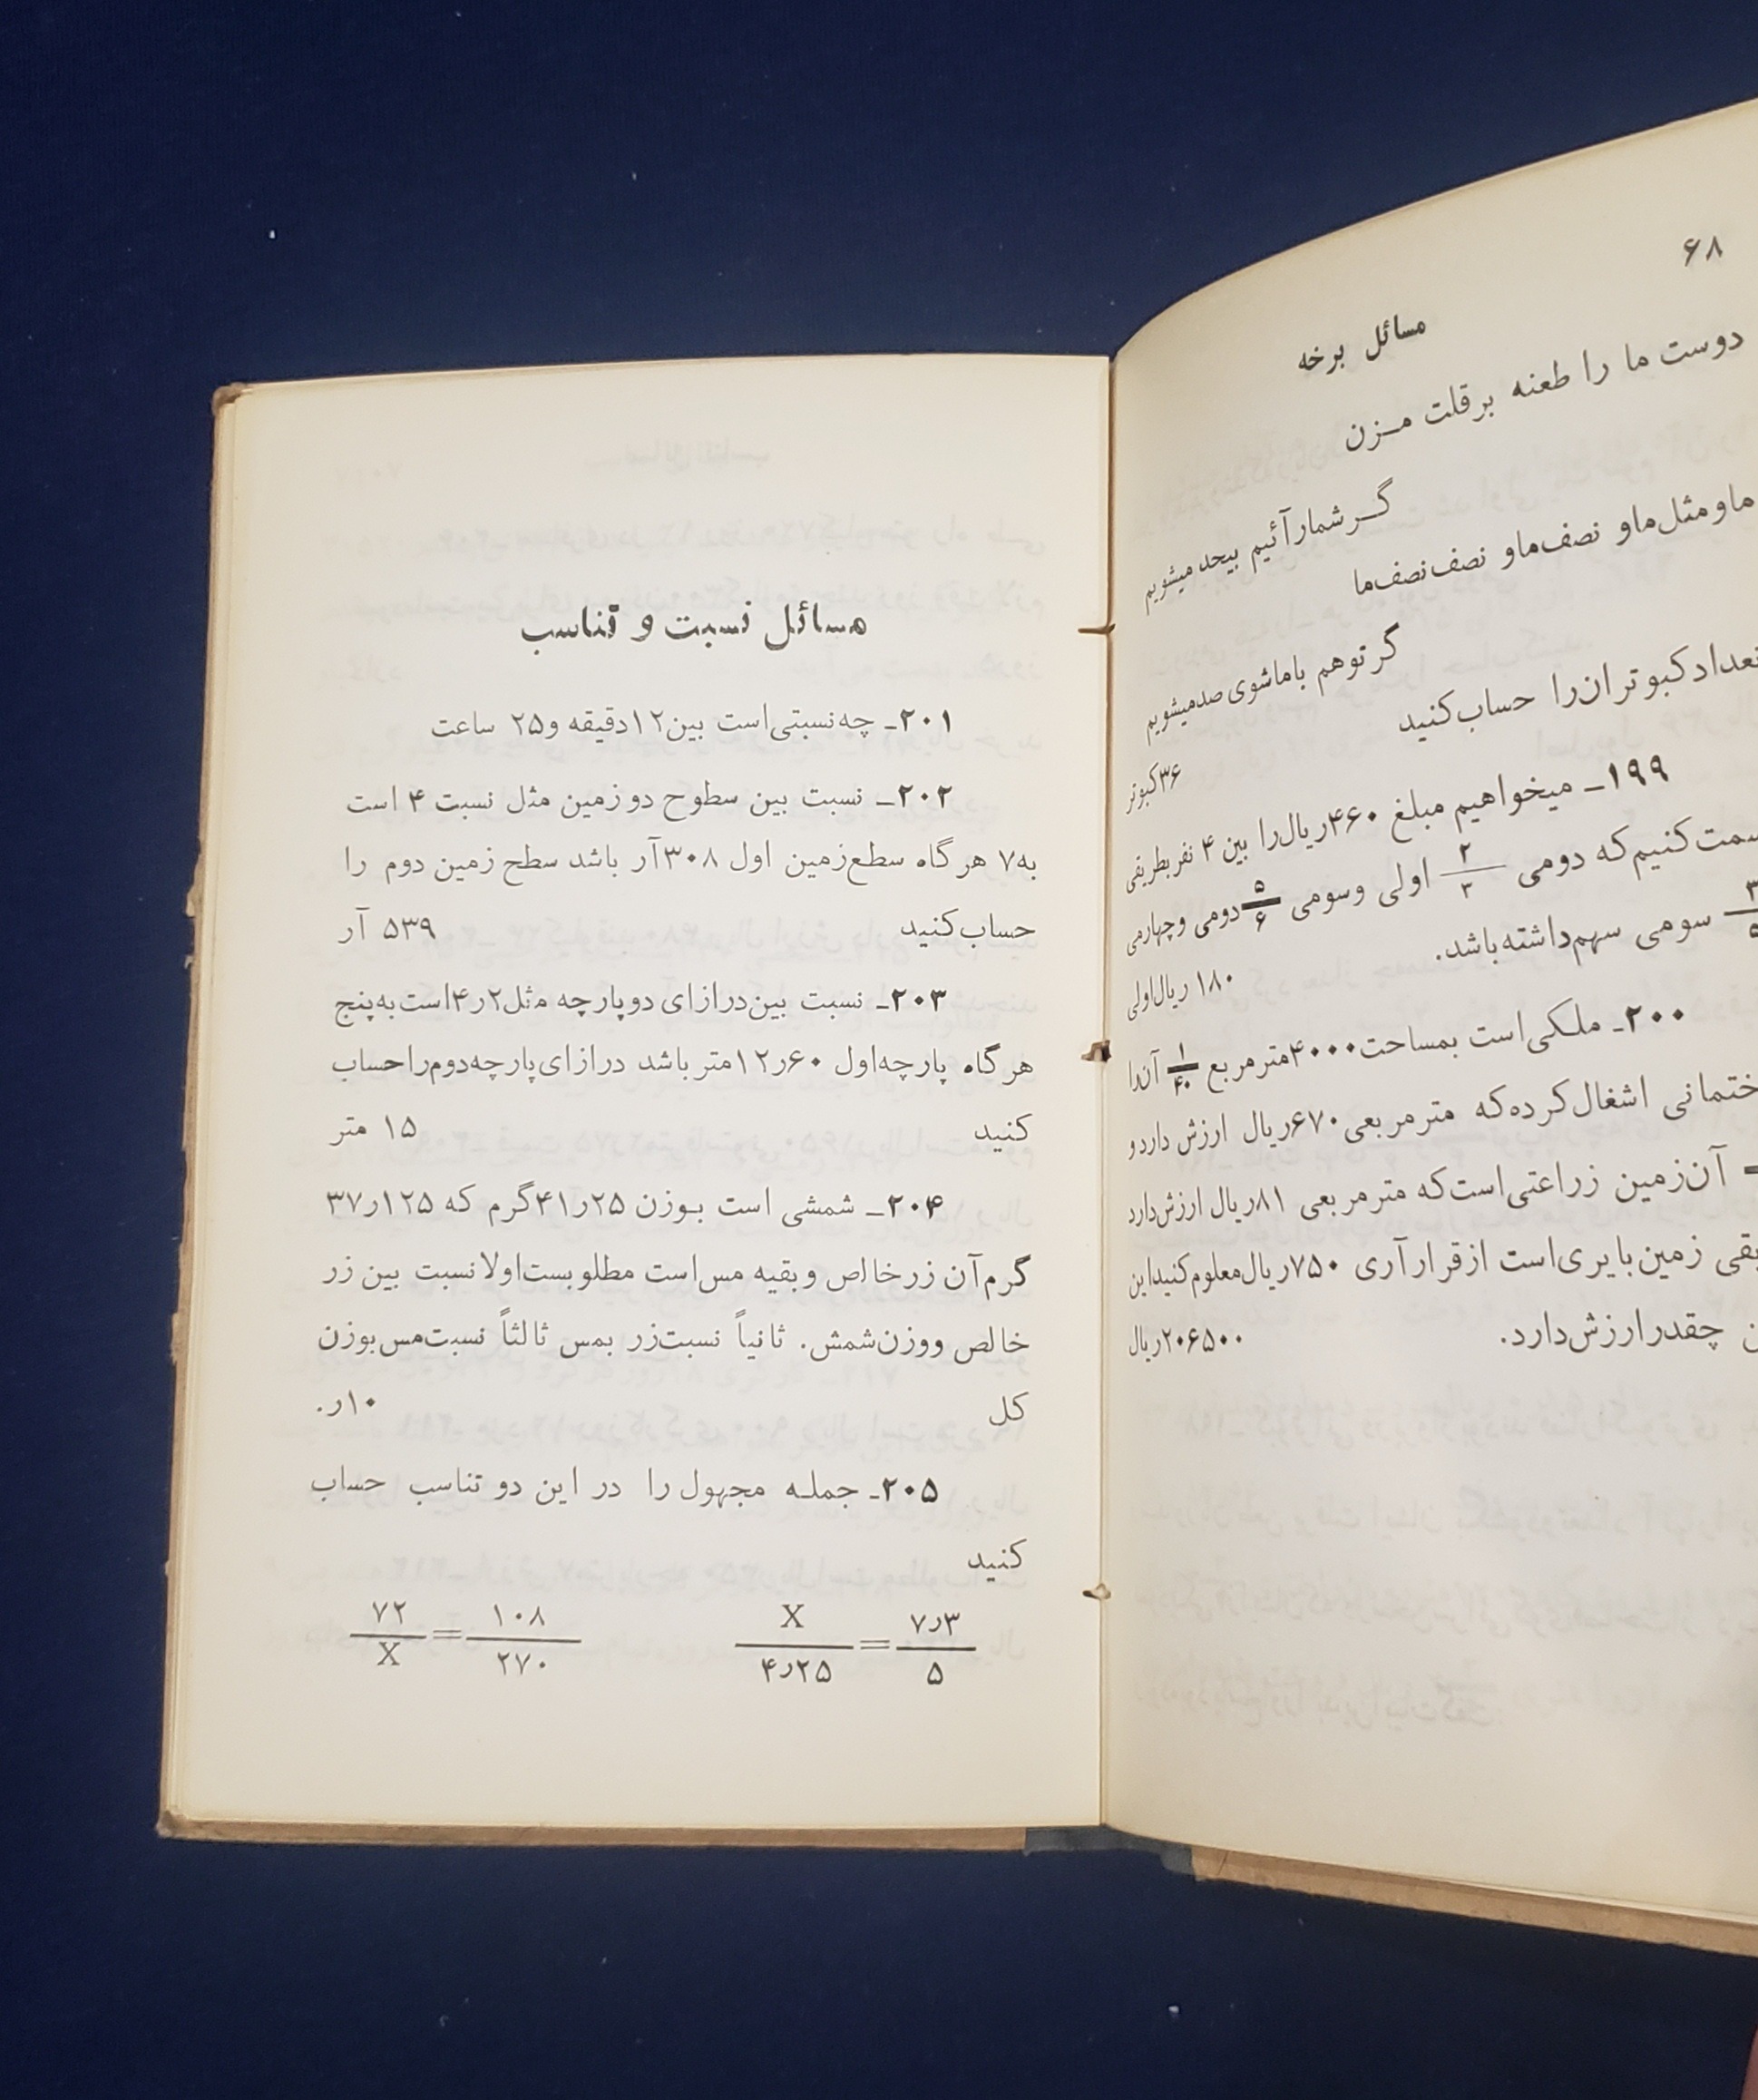 ۶۸
مسائل برخه
دوست ما را طعنه بر قلت مـزن
گـر شمار آئیم بیحد میشویم
ما و مثل ما و نصف ما و نصف نصف ما
گر تو هم با ما شوی صد میشویم
تعداد کبوتران را حساب کنید
۳۶ کبوتر
۱۹۹ـ میخواهیم مبلغ ۴۶۰ ریال را بین ۴ نفر بطریقی
سمت کنیم که دومی ۲/۳ اولی و سومی ۵/۶ دومی و چهارمی
۳/۵ سومی سهم داشته باشد. ۱۸۰ ریال اولی
۲۰۰ـ ملکی است بمساحت ۴۰۰۰ متر مربع ۱/۴۰ آن را
ختمانی اشغال کرده که متر مربعی ۶۷۰ ریال ارزش دارد و
آن زمین زراعتی است که متر مربعی ۸۱ ریال ارزش دارد
بقی زمین بایری است از قرار آری ۷۵۰ ریال معلوم کنید این
چقدر ارزش دارد. ۲۰۶۵۰۰ ریال
مسائل نسبت و تناسب
۲۰۱ـ چه نسبتی است بین ۱۲ دقیقه و ۲۵ ساعت
۲۰۲ـ نسبت بین سطوح دو زمین مثل نسبت ۴ است
به ۷ هر گاه سطع زمین اول ۳۰۸ آر باشد سطح زمین دوم را
حساب کنید ۵۳۹ آر
۲۰۳ـ نسبت بین درازای دو پارچه مثل ۴٫۲ است به پنج
هر گاه پارچه اول ۱۲٫۶۰ متر باشد درازای پارچه دوم را حساب
کنید ۱۵ متر
۲۰۴ـ شمشی است بـوزن ۴۱٫۲۵ گرم که ۳۷٫۱۲۵
گرم آن زر خالص و بقیه مس است مطلوبست اولا نسبت بین زر
خالص و وزن شمش. ثانیاً نسبت زر بمس ثالثاً نسبت مس بوزن
کل ۰٫۱۰
۲۰۵ـ جملـه مجهول را در این دو تناسب حساب
کنید
۷٫۳/۵ = X/۴٫۲۵ ۱۰۸/۲۷۰ = ۷۲/X